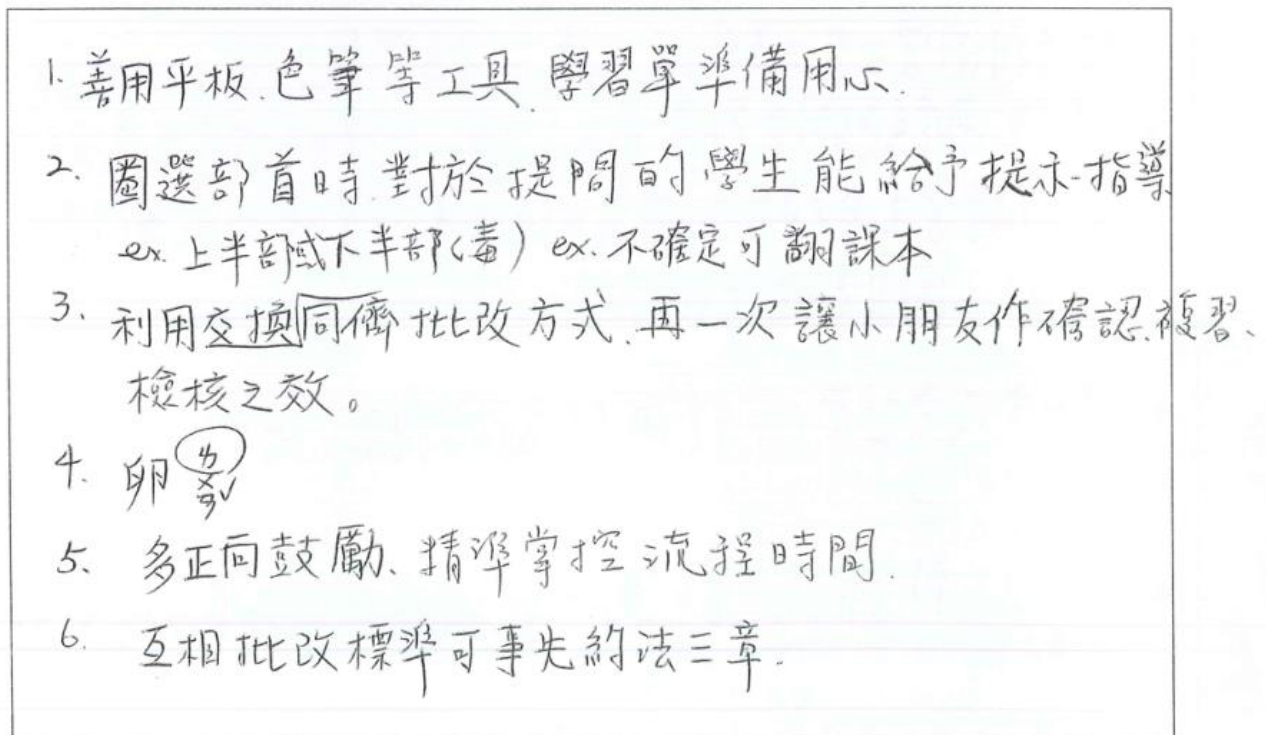 1. 善用平板、色筆等工具、學習單準備用心.
2. 圈選部首時、對於提問的學生能給予提示、指導
ex. 上半部或下半部(毒) ex. 不確定可翻課本
3. 利用交換同儕批改方式、再一次讓小朋友作確認、複習、
檢核之效。
4. 卵ㄌㄨㄢˇ
5、多正向鼓勵、精準掌控流程時間.
6. 互相批改標準可事先約法三章.